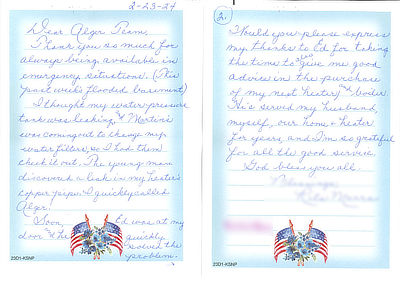 2-23-24
Dear Alger Team,
Thank you so much for
always being available in
emergency situations. (This
past week flooded basement)
I thought my water pressure
tank was leaking, & Martins
was coming out to change my
water filters, so I had them
check it out. The young man
discovered a leak in my heater's
copper pipe. I quickly called
Alger!
Soon, Ed was at my
door & he quickly
solved the
problem.
23D1-KSNP
2.
Would you please express
my thanks to Ed for taking
the time to also give me good
advice in the purchase
of my next heater & boiler.
He's served my husband,
myself, our home & heater
for years, and I'm so grateful
for all the good service.
God bless you all.
Blessings,
23D1-KSNP